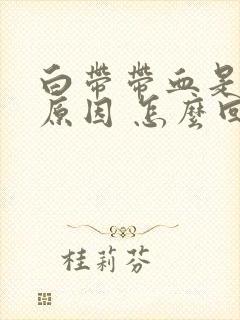 白帶帶血是
原因 怎麼回
桂莉芬